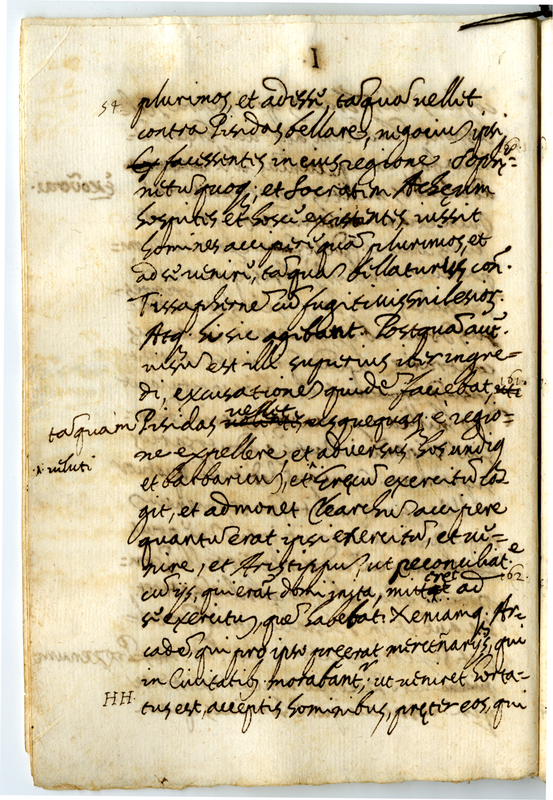 I
54. plurimos, et adesse, taquã vellet
contra Pisidas bellare, negociũ ipsi
facessentes in eius regione Soph-
netũ quoq;, et Socratem Acheum
hospites et hosce existentes, iussit
homines accipere quã plurimos, et
ad se venire, taquã bellaturus con.
Tissapherne cũ fugitivis milesiis.
Atq; hi sic agebant. Postquã aut.
visũ est illi superius iter ingre=
di, excusatione quidẽ faciebat, 61
taquam Pisidas vellet usquequaq; e regio=
.n. veluti ne expellere et adversus hos undiq
et barbaricũ, et Grecũ exercitũ co
git, et admonet Clearchũ accipere
quantũ erat ipsi exercitũ, et ve=
nire, et Aristippũ, ut reconciliat.
cũ ijs, qui erãt domi iusta, mitteret ad 62.
se exercitũ, quẽ habebat. Xeniamq. Ar-
cadẽ qui pro ipso preerat mercenarijs, qui
in Civitatib. morabant, ut veniret horta-
HH. tus est, acceptis hominibus, preter eos, qui